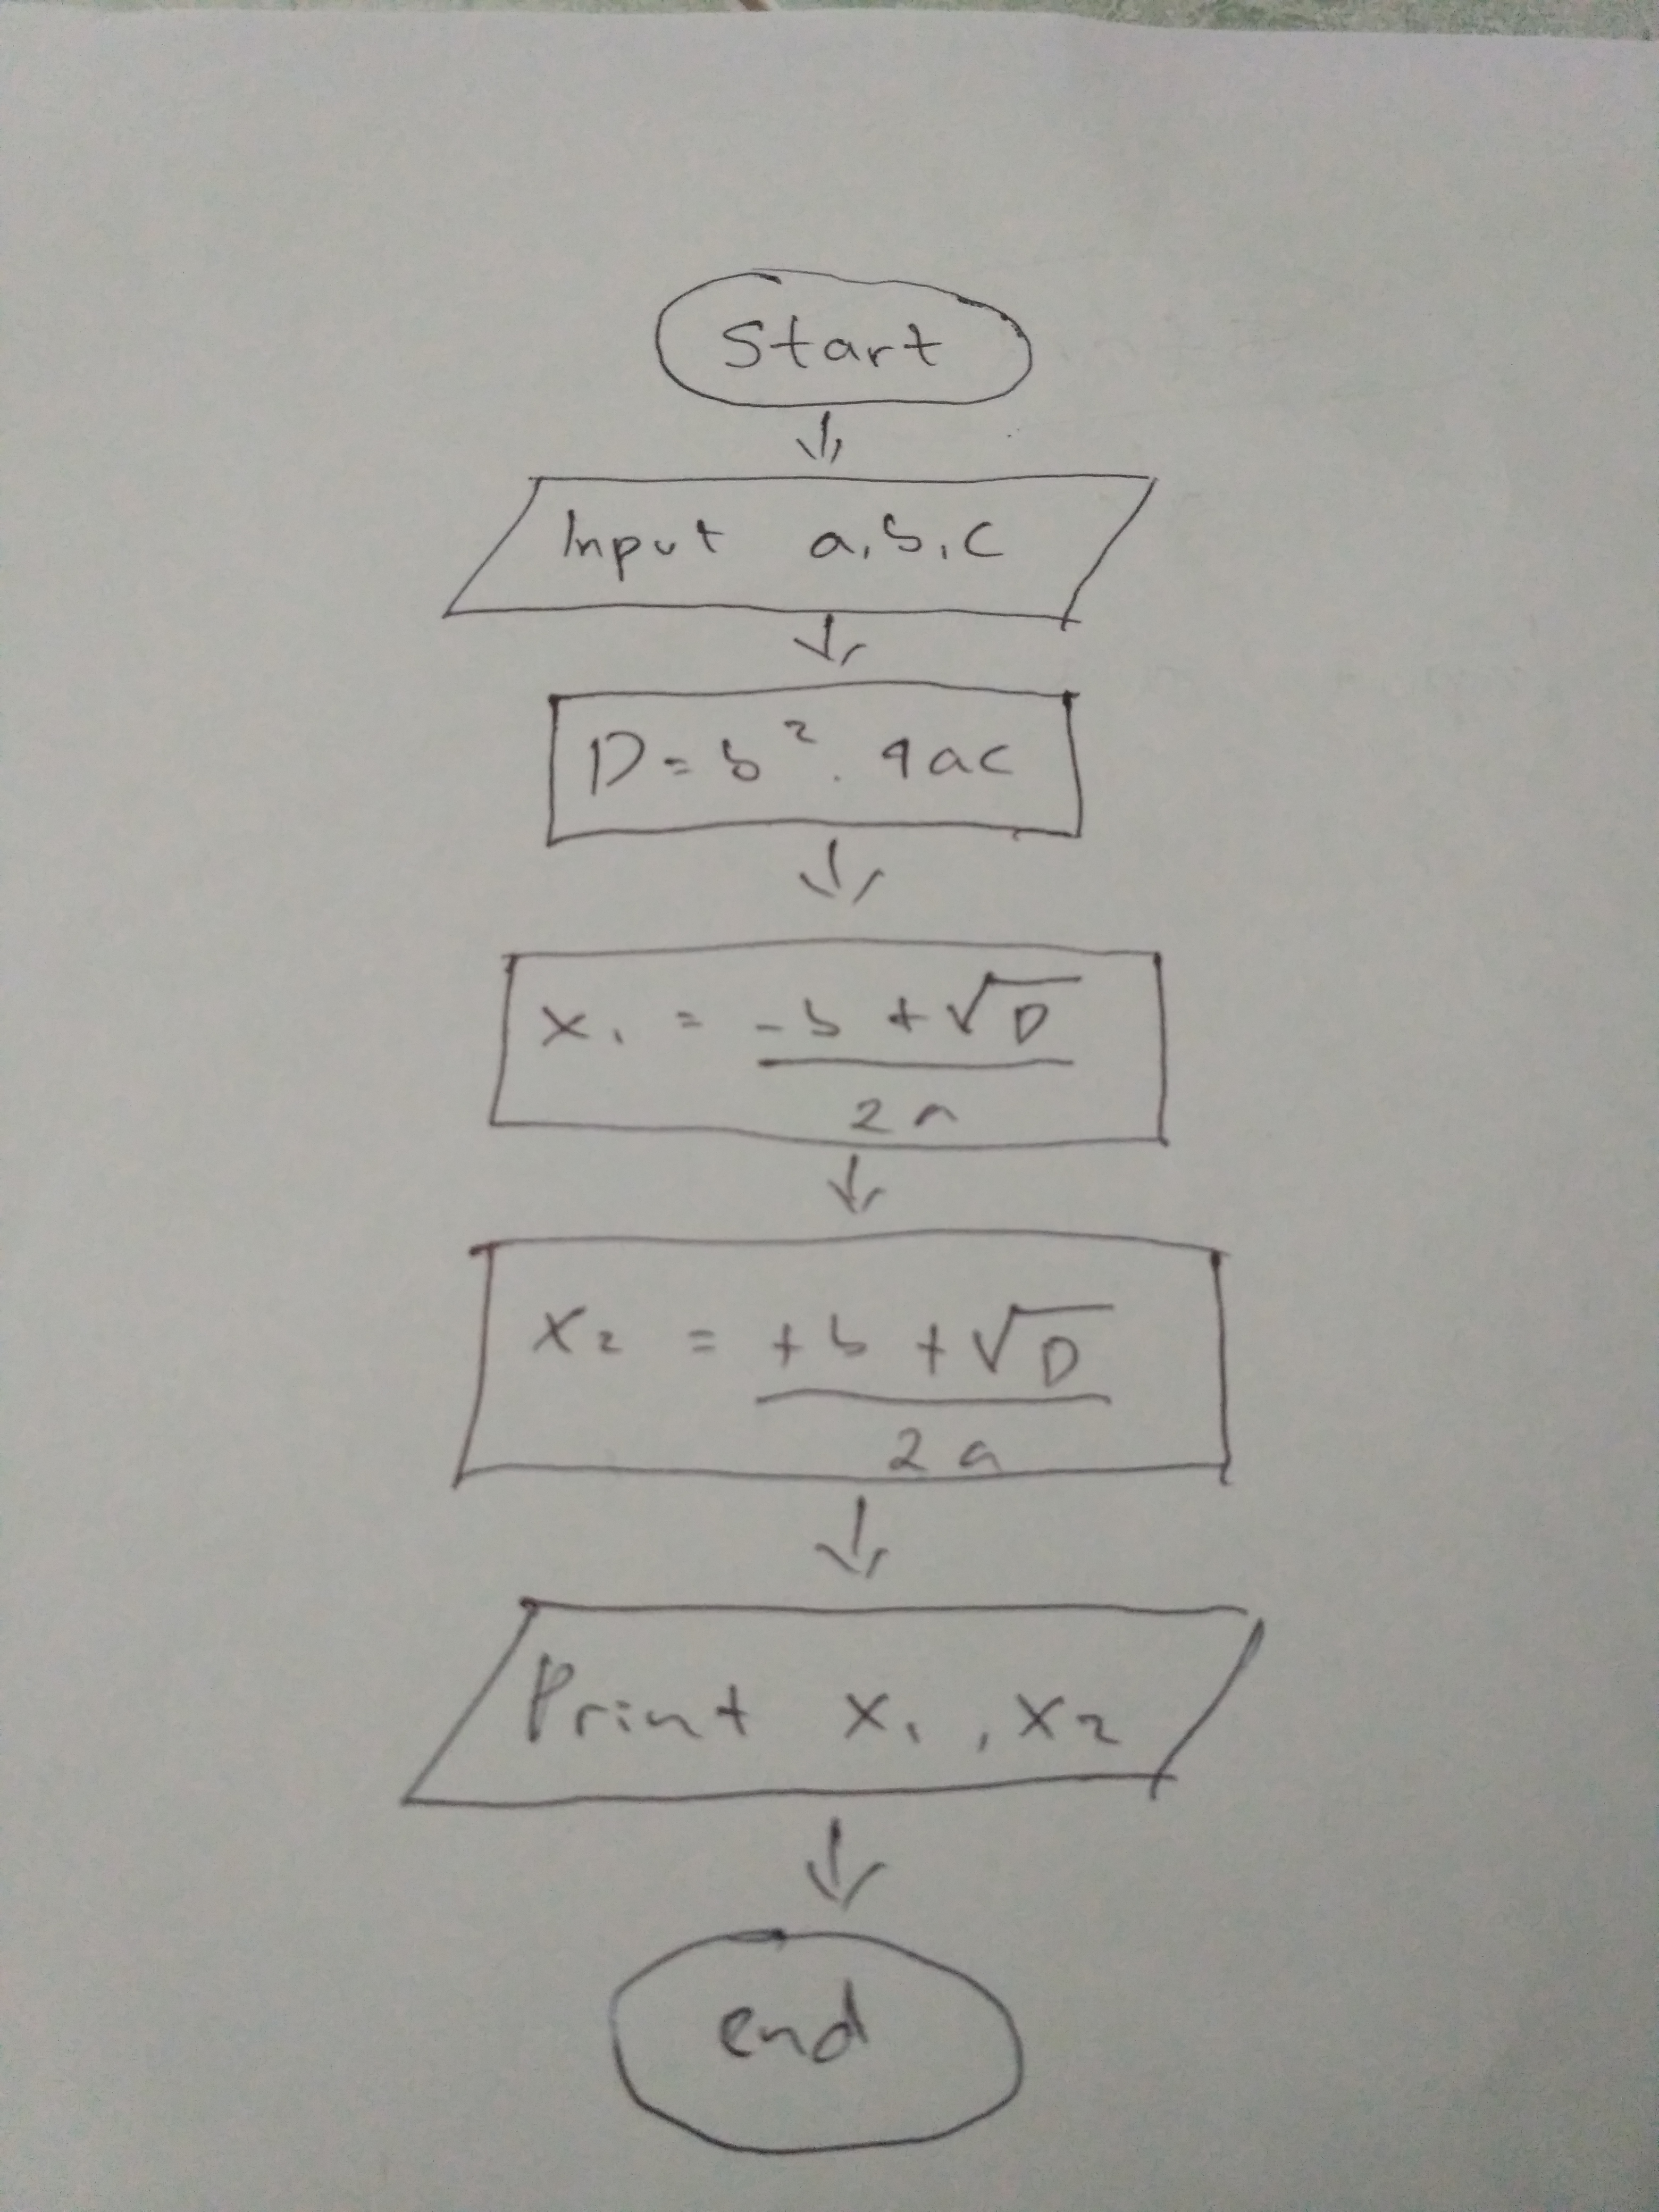 Start
Input a, b, c
D = b² . 4ac
x₁ = -b + √D
2a
x₂ = +b + √D
2a
Print x₁, x₂
end